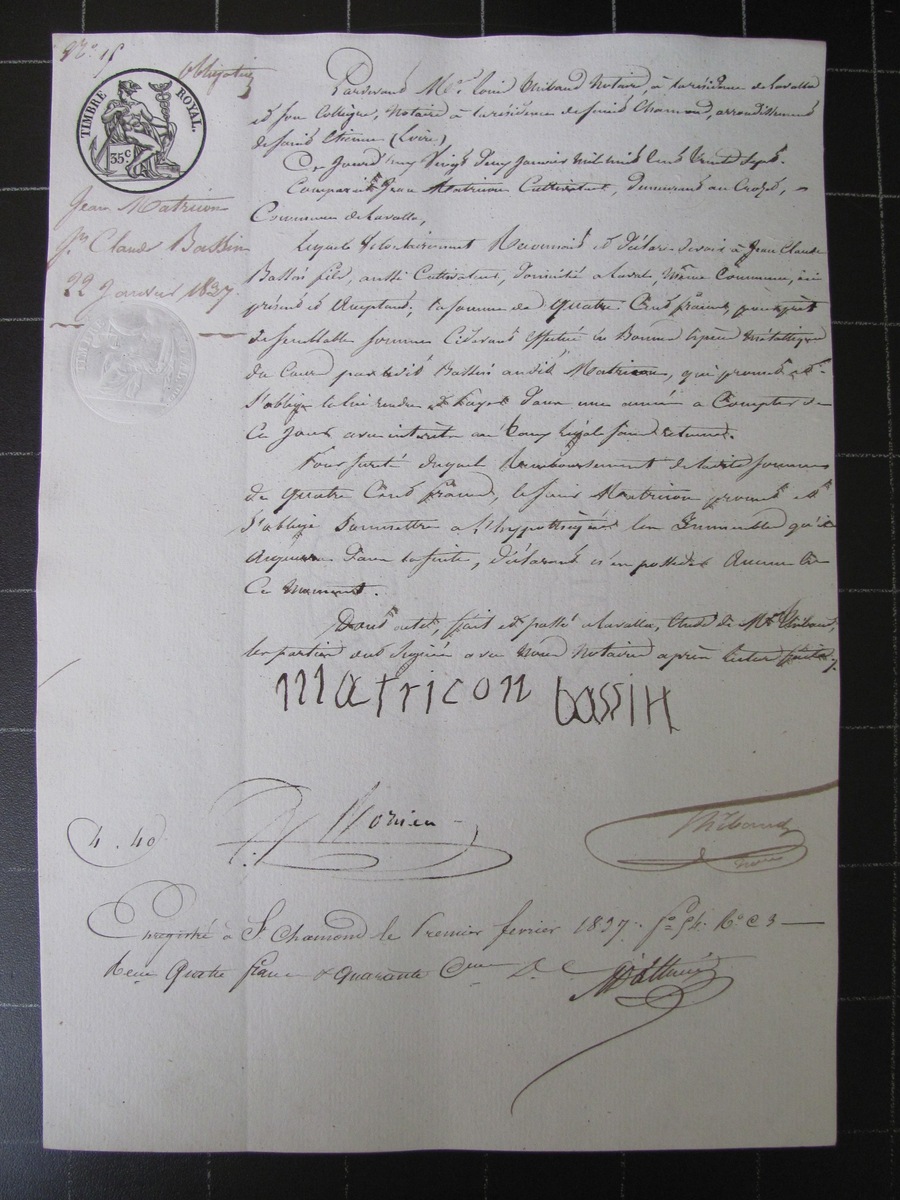 obligation
TIMBRE ROYAL.
35 c
Jean Matricon
Jn Claude Bassin
22 Janvier 1837.
Pardevant Me Louis Thibaud Notaire, à la résidence de Lavalla
et son Collègue, Notaire à la résidence de Saint Chamond, arrondissement
de Saint Etienne (Loire)
Ce Jourd'huy Vingt Deux Janvier mil huit Cent Trente Sept.
Comparait Jean Matricon Cultivateur, demeurant au
Commune de Lavalla,
Lequel Volontairement Reconnait et déclare devoir à Jean Claude
Bassin fils, aussi Cultivateur, Domicilié a Laval, Même Commune, ici
présent et acceptant, la somme de Quatre Cent francs, pour prêt
de semblable somme Cidevant effectué en Bonnes Espèces Métalliques
du Cours par ledit Bassin audit Matricon, qui promet et
S'oblige la lui rendre et payer Dans une année a Compter de
Ce Jour avec intérêts au Taux légal sans retenue.
Pour sureté duquel Remboursement de ladite somme
de Quatre Cent francs, le dit Matricon promet et
S'oblige Soumettre a L'hypothèque les Immeubles qu'il
acquerra Dans la suite, déclarant n'en posséder Aucun en
Ce Moment.
Dont acte, fait et passé a Lavalla, Etude de Me Thibaud,
les parties ont Signé avec Nous Notaires après lecture faite
Matricon bassin
4 . 40
Thibaud
Enregistré à St Chamond le Premier février 1837. fo 54. Ro C 3
Reçu Quatre francs & Quarante Cmes